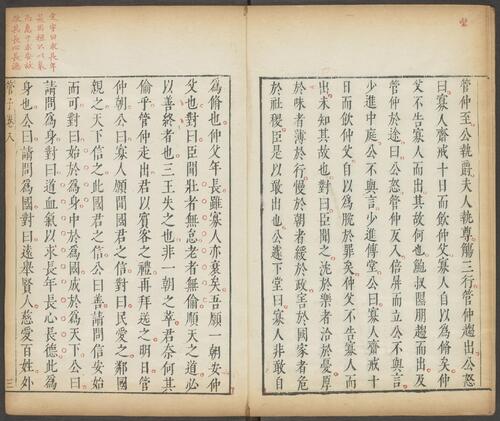 管仲至公執爵夫人執尊觴三行管仲趨出公怒
曰寡人齋戒十日而飲仲父寡人自以為脩矣仲
父不告寡人而出其故何也鮑叔隰朋趨而出及
管仲於途曰公怒管仲反入倍屏而立公不與言
少進中庭公不與言少進傅堂公曰寡人齋戒十
日而飲仲父自以為脫於罪矣仲父不告寡人而
出未知其故也對曰臣聞之沈於樂者洽於憂厚
於味者薄於行慢於朝者緩於政害於國家者危
於社稷臣是以敢出也公遽下堂曰寡人非敢自
為脩也仲父年長雖寡人亦衰矣吾願一朝安仲
父也對曰臣聞壯者無怠老者無偷順天之道必
以善終者也三王失之也非一朝之萃君奈何其
偷乎管仲走出君以賓客之禮再拜送之明日管
仲朝公曰寡人願聞國君之信對曰民愛之鄰國
親之天下信之此國君之信公曰善請問信安始
而可對曰始於為身中於為國成於為天下公曰
請問為身對曰道血氣以求長年長心長德此為
身也公曰請問為國對曰遠舉賢人慈愛百姓外
管子卷八
三
定宇曰求長年
長心長德